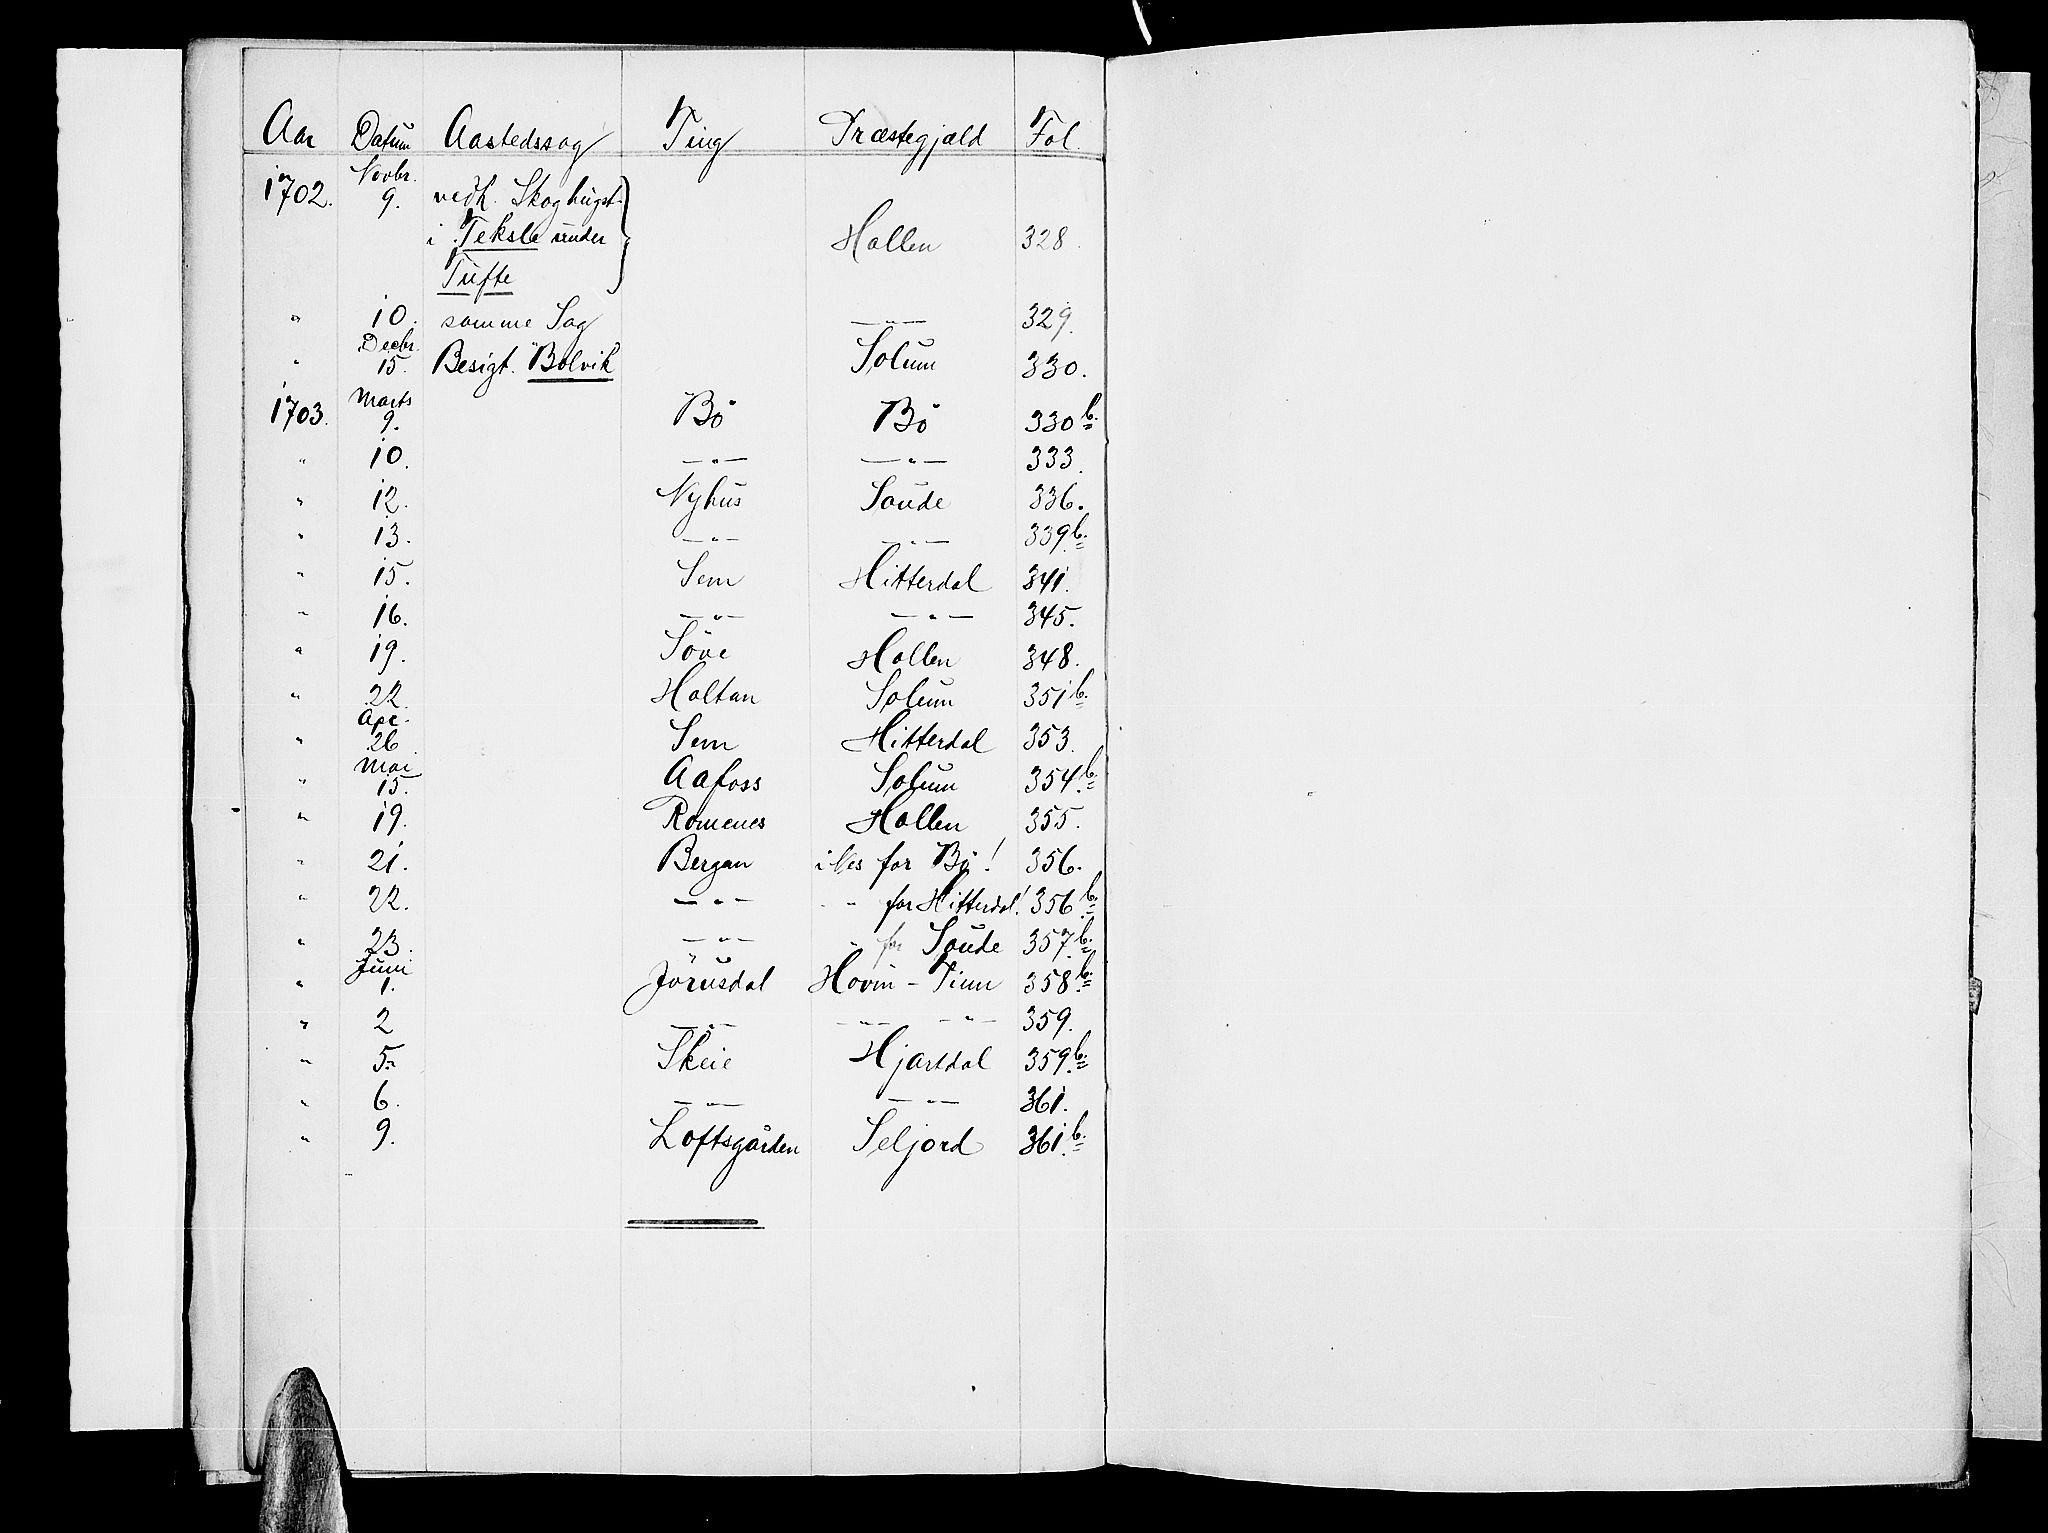 Aar Datum Aastedssag Ting Præstegjæld Fol.
1702. Novbr. 9. vedk. Skoghugst
i Teksle under Hollen 328.
Tufte
" 10. samme Sag —"— 329.
" Decbr. 15. Besigt. Bolvik Solum 330.
1703. Marts 9. Bö Bö 330 b.
" 10. —"— —"— 333.
" 12. Nyhus Saude 336.
" 13. —"— —"— 339 b.
" 15. Sem Hitterdal 341.
" 16. —"— —"— 345.
" 19. Söve Hollen 348.
" 22. Holtan Solum 351 b.
" Apr. 26. Sem Hitterdal 353.
" Mai 15. Aafoss Solum 354 b.
" 19. Romenes Hollen 355.
" 21. Bergan i Nes for Bö! 356.
" 22. —"— " " for Hitterdal! 356 b.
" 23. —"— " for Saude 357 b.
" Juni 1. Jörusdal Hovin - Tinn 358 b.
" 2 —"— —"— —"— 359.
" 5. Skeie Hjartdal 359 b.
" 6. —"— —"— 361.
" 9. Loftsgården Seljord 361 b.